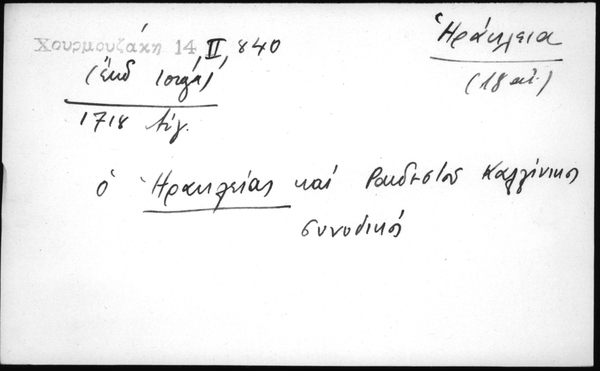 Χουρμουζάκη 14, II, 840
Ἡράκλεια
(ἐκδ Ιοργα)
(18 αἰ.)
1718 Αὔγ.
ὁ Ἡρακλείας καί Ραιδεστοῦ Καλλίνικος
συνοδικός